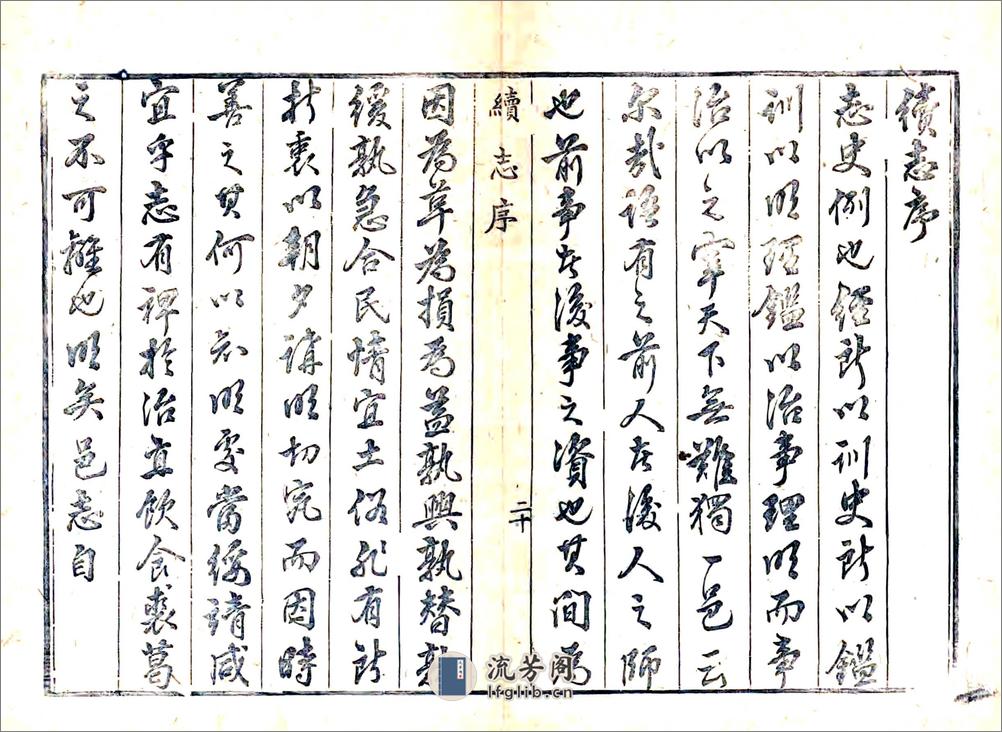 續志序
志史例也經所以訓史所以鑑
訓以明理鑑以治事理明而事
治以之宰天下無難獨一邑云
尔哉語有之前人者後人之師
也前事者後事之資也其間為
續志序
二十
因為革為損為益孰興孰替孰
緩孰急合民情宜土俗非有所
折衷以朝夕講明切究而因時
善之其何以衷明處當綏靖咸
宜乎志有裨於治直飲食裘葛
之不可離也明矣邑志自
流芳阁
lfglib.cn